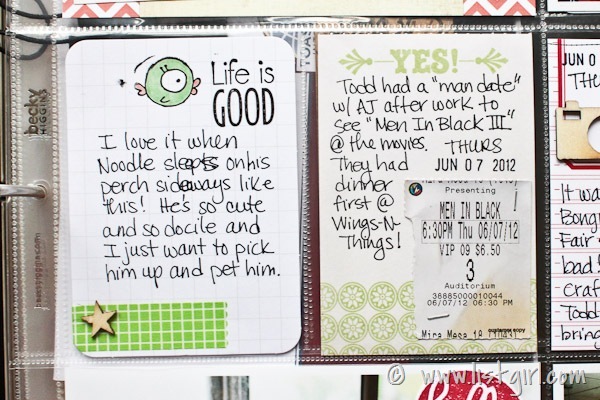 becky
HIGGINS
beckyhiggins.com
Life is
GOOD
I love it when
Noodle sleeps on his
perch sideways like
this! He's so cute
and so docile and
I just want to pick
him up and pet him.
YES!
Todd had a "man date"
w/ AJ after work to
see "Men In Black III"
@ the movies. THURS
They had JUN 07 2012
dinner
first @
Wings-N-
Things!
Presenting
MEN IN BLACK
6:30PM Thu 06/07/12
VIP 09 $6.50
3
Auditorium
38885000010044
06/07/12 06:30 PM
customer copy
JUN 0
THU
It wa
Bong
Fair
bad!
craf
Todd
bring
© www.listgirl.com